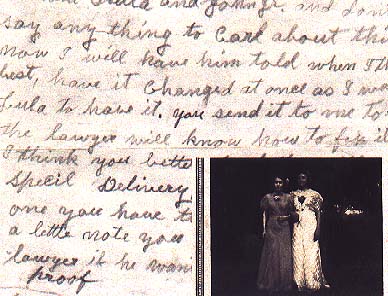 and John Jr. and don
say any thing to Carl about thi
now I will have him told when I th
best, have it changed at once as I wa
Lula to have it. you send it to me to
the lawyer will know how to fix it
I think you bette
Specil Delivery
one you have t
a little note you
lawyer if he wan
proof